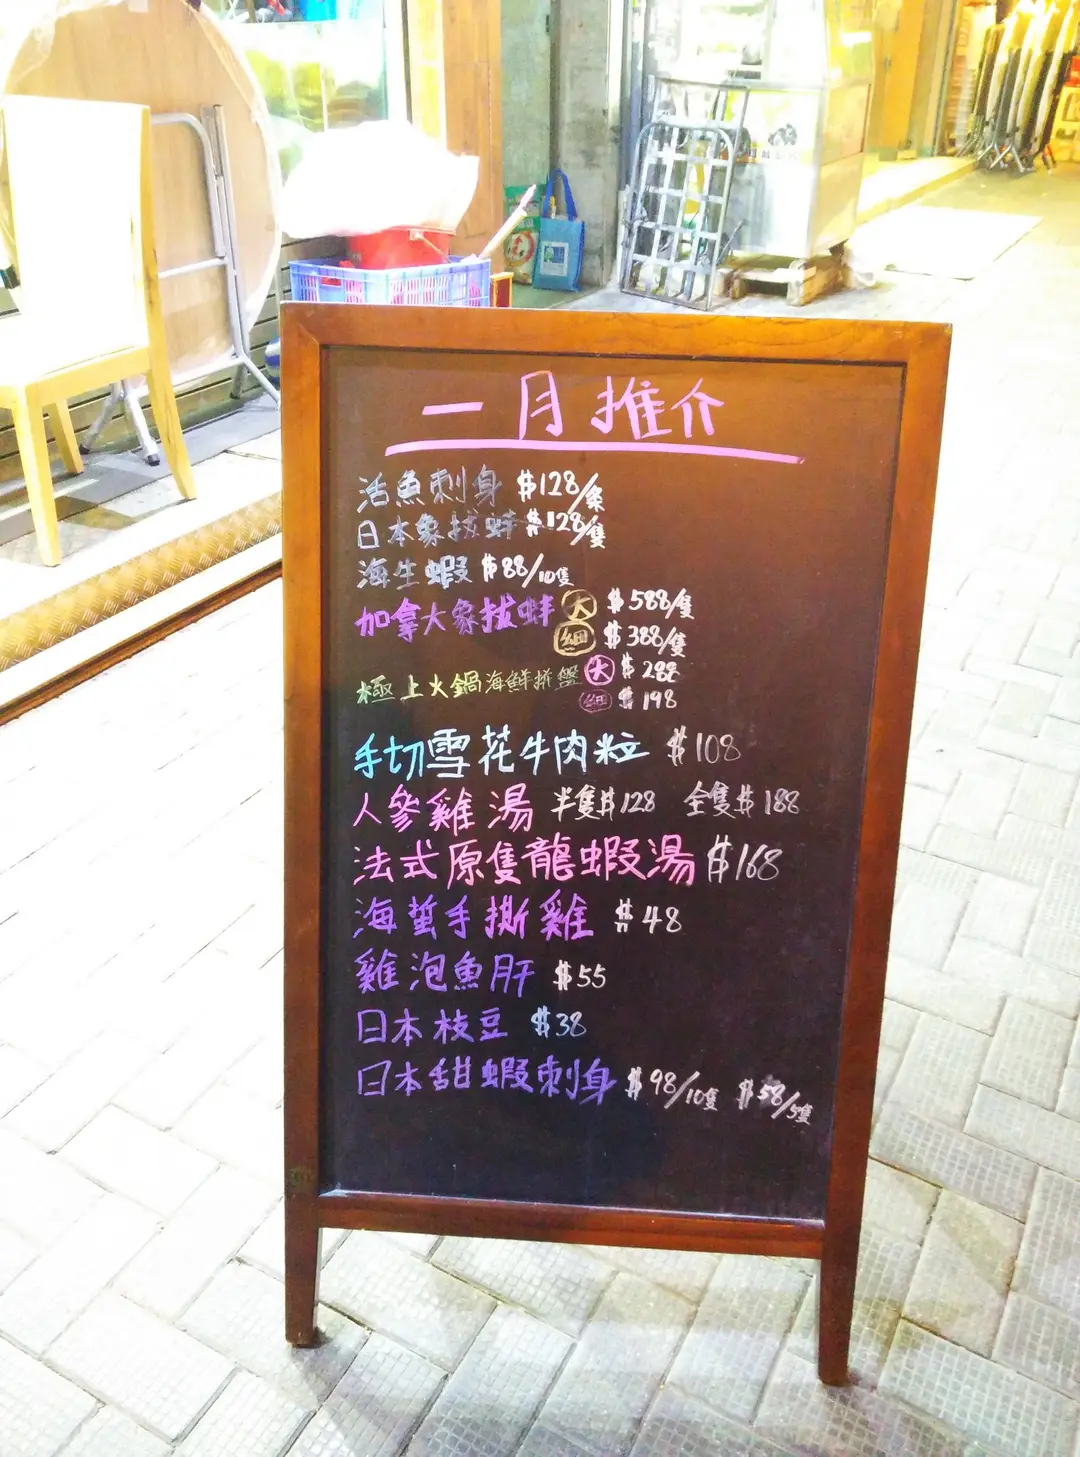 一月推介
活魚刺身 $128/条
日本象拔蚌 $128/隻
海生蝦 $88/10隻
加拿大象拔蚌 大 $588/隻
細 $388/隻
極上火鍋海鮮拼盤 大 $288
細 $198
手切雪花牛肉粒 $108
人參雞湯 半隻$128 全隻$188
法式原隻龍蝦湯 $168
海蜇手撕雞 $48
雞泡魚肝 $55
日本枝豆 $38
日本甜蝦刺身 $98/10隻 $58/5隻